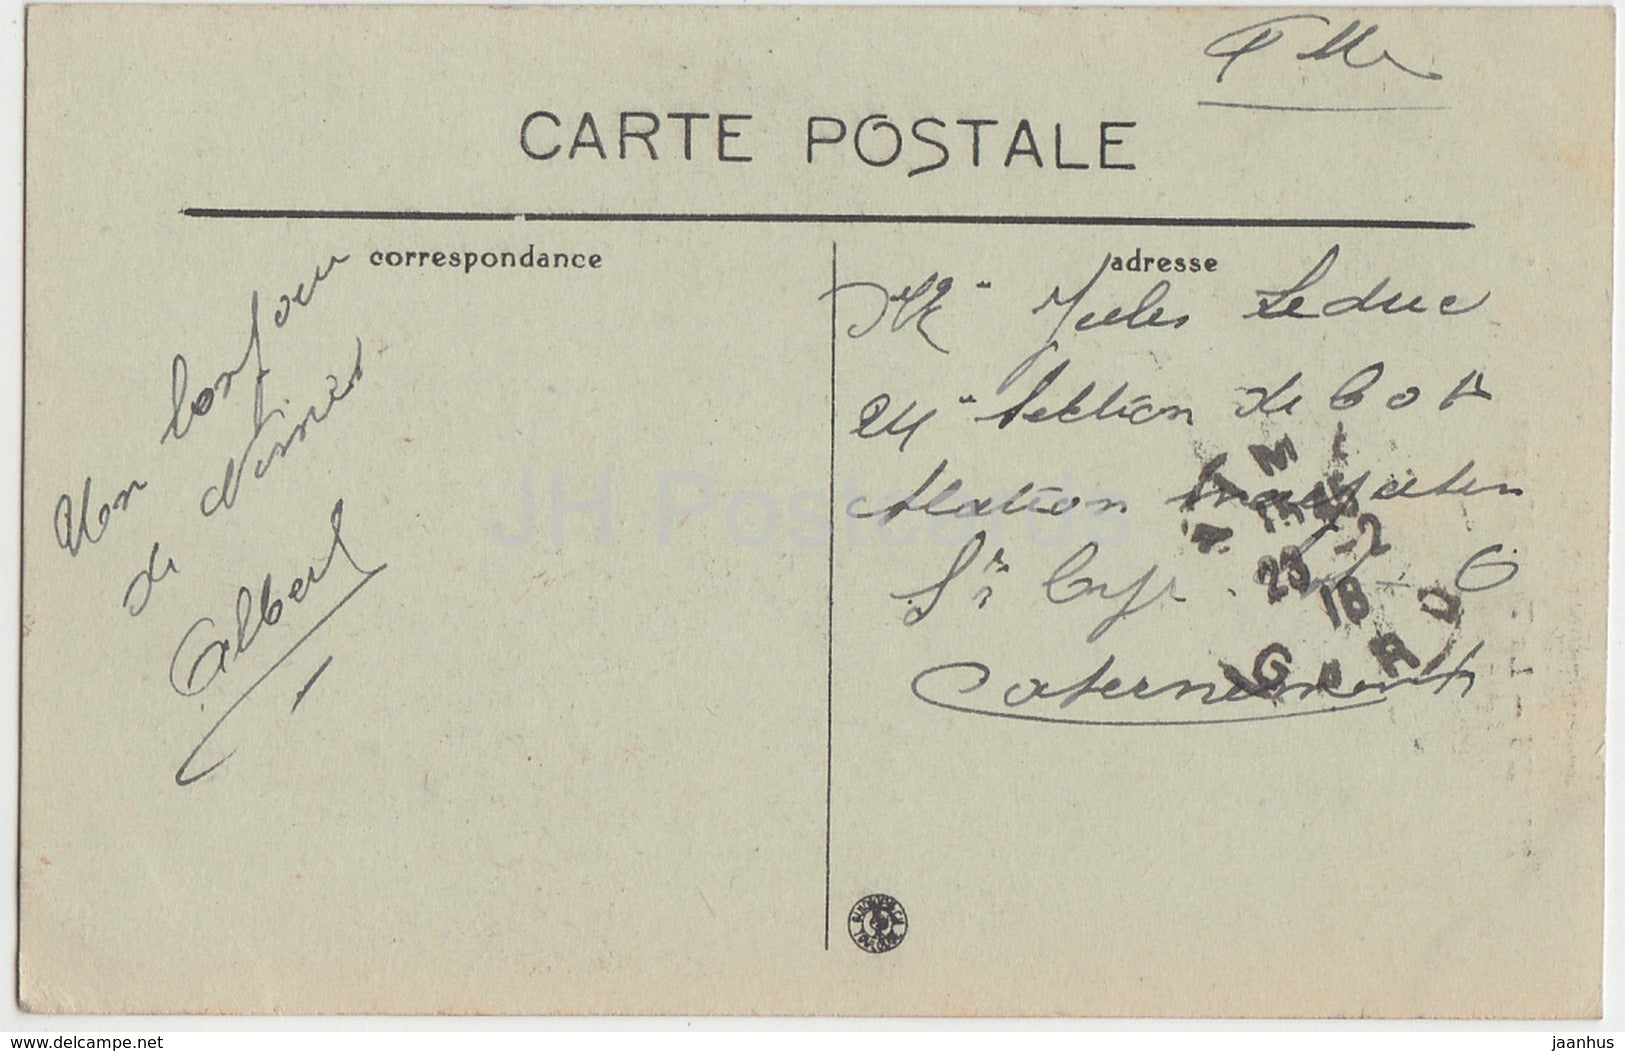 F M
CARTE POSTALE
correspondance
adresse
Un bonjour
de Nimes
Albert
Mr Jules Leduc
24e Section de
Station
St Cyr
Casernements
23 -2
18
G A R D
JH Postcards
delcampe.net
jaanhus